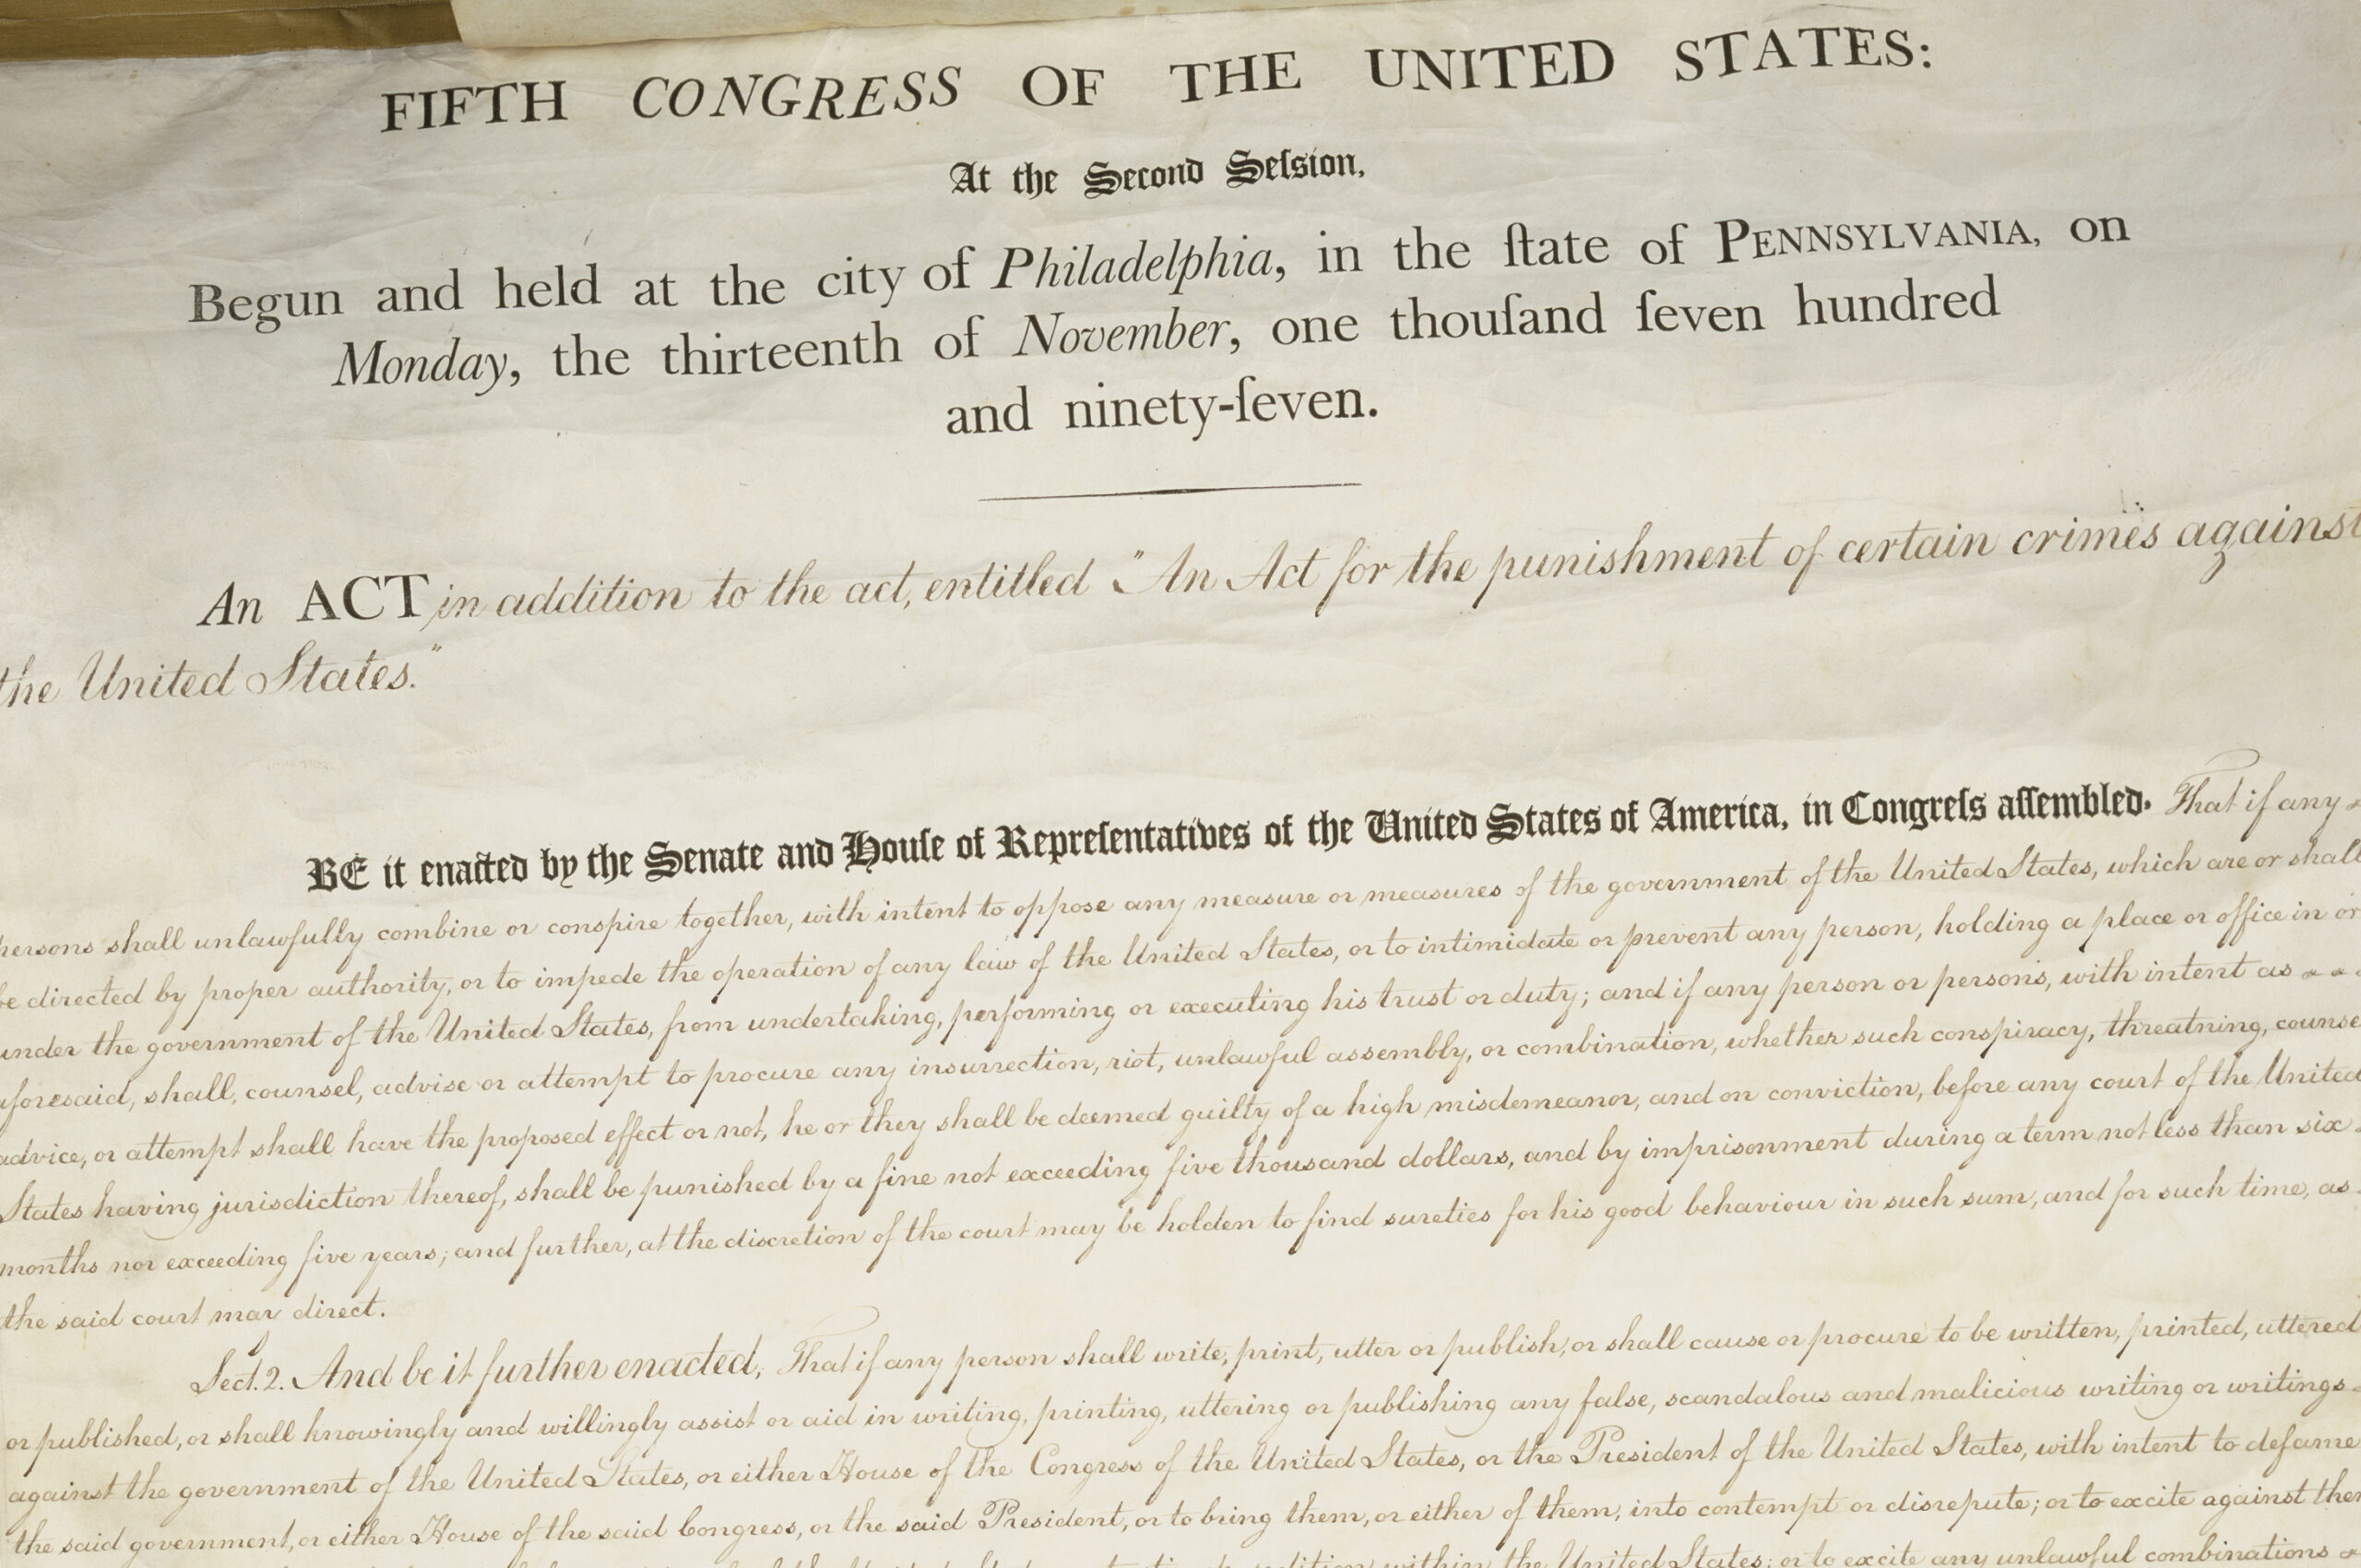 FIFTH CONGRESS OF THE UNITED STATES:
At the Second Seſsion,
Begun and held at the city of Philadelphia, in the ſtate of PENNSYLVANIA, on
Monday, the thirteenth of November, one thouſand ſeven hundred
and ninety-ſeven.
An ACT in addition to the act, entitled "An Act for the punishment of certain crimes against
the United States."
BE it enacted by the Senate and Houſe of Repreſentatives of the United States of America, in Congreſs aſſembled. That if any
persons shall unlawfully combine or conspire together, with intent to oppose any measure or measures of the government of the United States, which are or shall
be directed by proper authority, or to impede the operation of any law of the United States, or to intimidate or prevent any person, holding a place or office in or
under the government of the United States, from undertaking, performing or executing his trust or duty; and if any person or persons, with intent as
aforesaid, shall, counsel, advise or attempt to procure any insurrection, riot, unlawful assembly, or combination, whether such conspiracy, threatning, counse
advice, or attempt shall have the proposed effect or not, he or they shall be deemed guilty of a high misdemeanor, and on conviction, before any court of the United
States having jurisdiction thereof, shall be punished by a fine not exceeding five thousand dollars, and by imprisonment during a term not less than six
months nor exceeding five years; and further, at the discretion of the court may be holden to find sureties for his good behaviour in such sum, and for such time, as
the said court may direct.
Sect. 2. And be it further enacted, That if any person shall write, print, utter or publish, or shall cause or procure to be written, printed, uttered
or published, or shall knowingly and willingly assist or aid in writing, printing, uttering or publishing any false, scandalous and malicious writing or writings
against the government of the United States, or either House of the Congress of the United States, or the President of the United States, with intent to defame
the said government, or either House of the said Congress, or the said President, or to bring them, or either of them, into contempt or disrepute; or to excite against them
sedition within the United States; or to excite any unlawful combinations